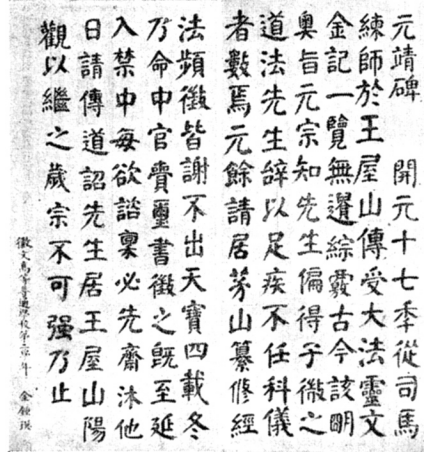 元靖碑　開元十七季從司馬
練師於王屋山傳受大法靈文
金記一覽無遺綜覈古今該眀
奧旨元宗知先生偏得子微之
道法先生辭以足疾不任科儀
者數焉元餘請居茅山纂修經
法頻徵皆謝不出天寶四載冬
乃命中官賫璽書徵之既至延
入禁中每欲諮稟必先齋沐他
日請傳道詔先生居王屋山陽
觀以繼之歲宗不可强乃止
徽文高等普通學校第 年 金鍾